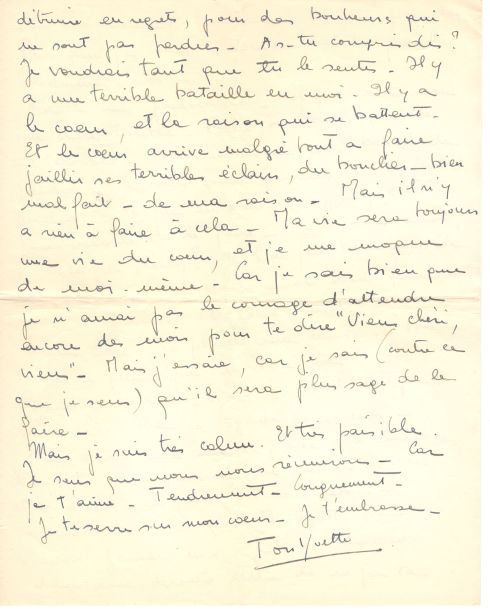 détruire en regrets, pour des bonheurs qui
ne sont pas perdus - As-tu compris dis ?
Je voudrais tant que tu le sentes - Il y
a une terrible bataille en moi. Il y a
le coeur, et la raison qui se battent.
Et le coeur arrive malgré tout a faire
jaillir ses terribles éclairs, du bouclier - bien
mal fait - de ma raison - Mais il n'y
a rien à faire à cela - Ma vie sera toujours
une vie du coeur, et je me moque
de moi-même - Car je sais bien que
je n'aurai pas le courage d'attendre
encore des mois pour te dire "Viens chéri,
viens" - Mais j'essaie, car je sais (contre ce
que je sens) qu'il sera plus sage de le
faire -
Mais je suis très calme. Et très paisible.
Je sens que nous nous réunirons - Car
je t'aime - Tendrement - Longuement -
Je te serre sur mon coeur - Je t'embrasse -
Ton Yvette